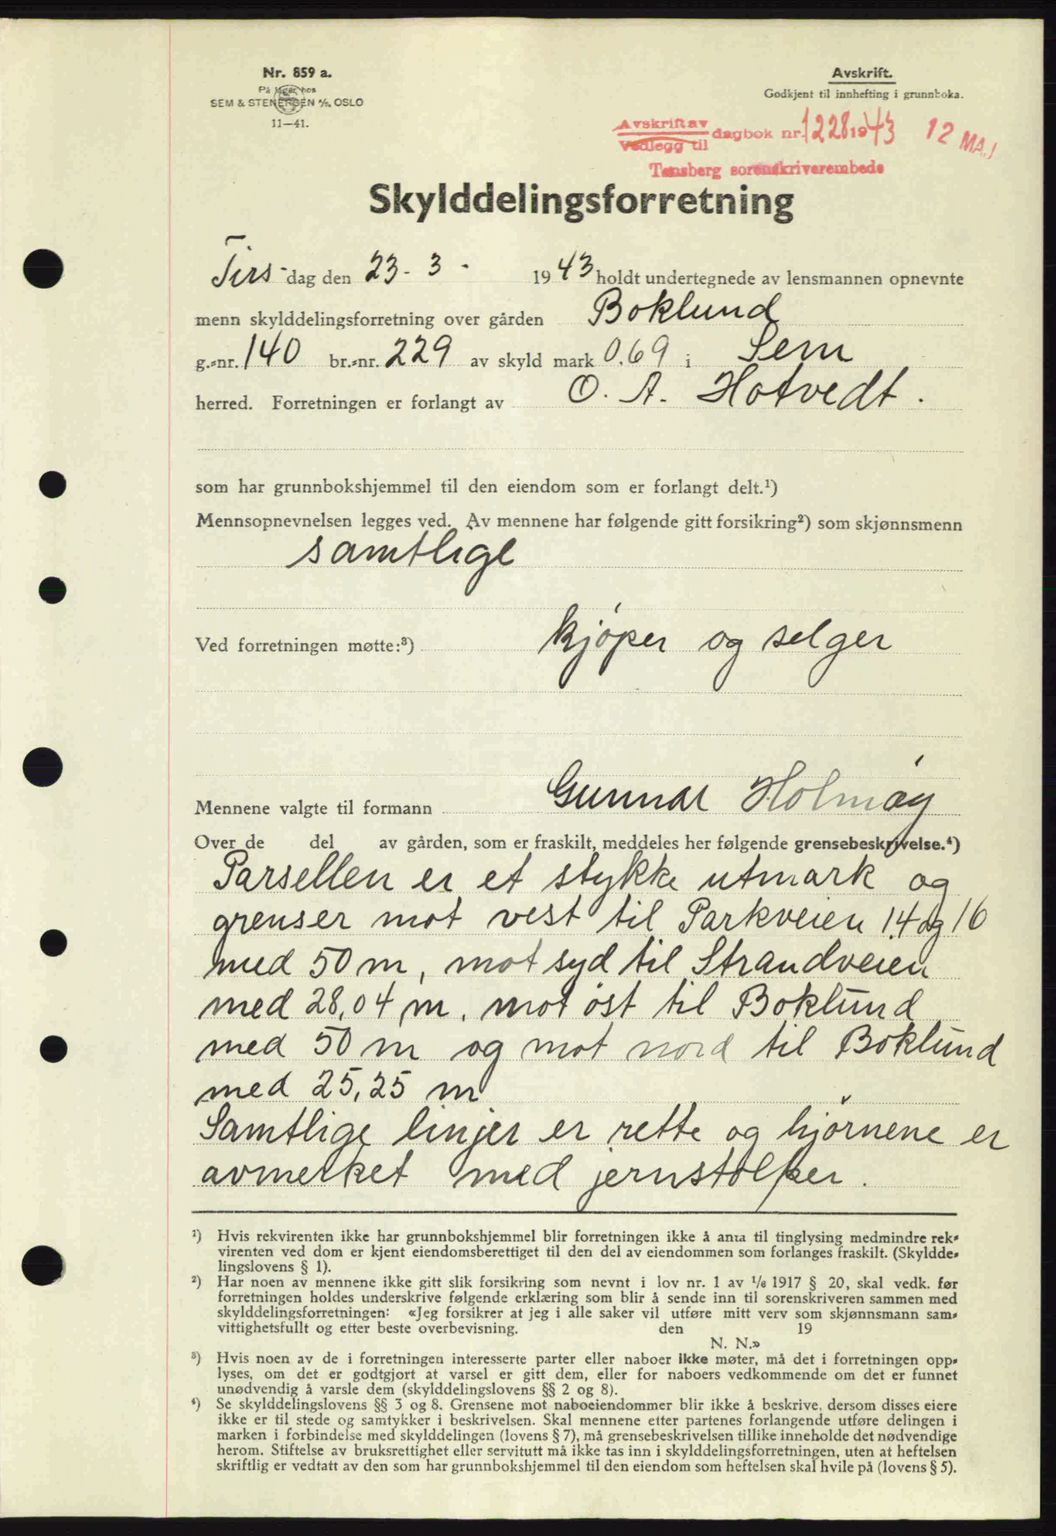 Nr. 859 a.
På lager hos
SEM & STENERSEN A/S, OSLO
11—41.
Avskrift.
Godkjent til innhefting i grunnboka.
Avskrift av
Vedlegg til
dagbok nr. 1228 1943 12 MAI
Tønsberg sorenskriverembede
Skylddelingsforretning
Tirs-dag den 23-3- 1943 holdt undertegnede av lensmannen opnevnte
menn skylddelingsforretning over gården Boklund
g.-nr. 140 br.-nr. 229 av skyld mark 0,69 i Sem
herred. Forretningen er forlangt av O. A. Hotvedt.
som har grunnbokshjemmel til den eiendom som er forlangt delt.¹)
Mennsopnevnelsen legges ved. Av mennene har følgende gitt forsikring²) som skjønnsmenn
samtlige
Ved forretningen møtte:³) kjøper og selger
Mennene valgte til formann Gunnar Holmøy
Over de del av gården, som er fraskilt, meddeles her følgende grensebeskrivelse.⁴)
Parsellen er et stykke utmark og
grenser mot vest til Parkveien 14 og 16
med 50 m, mot syd til Strandveien
med 28,04 m, mot øst til Boklund
med 50 m og mot nord til Boklund
med 25,25 m
Samtlige linjer er rette og hjørnene er
avmerket med jernstolper.
¹) Hvis rekvirenten ikke har grunnbokshjemmel blir forretningen ikke å anta til tinglysing medmindre rek-
virenten ved dom er kjent eiendomsberettiget til den del av eiendommen som forlanges fraskilt. (Skyldde-
lingslovens § 1).
²) Har noen av mennene ikke gitt slik forsikring som nevnt i lov nr. 1 av 1/6 1917 § 20, skal vedk. før
forretningen holdes underskrive følgende erklæring som blir å sende inn til sorenskriveren sammen med
skylddelingsforretningen: «Jeg forsikrer at jeg i alle saker vil utføre mitt verv som skjønnsmann sam-
vittighetsfullt og etter beste overbevisning. den 19
N. N.»
³) Hvis noen av de i forretningen interesserte parter eller naboer ikke møter, må det i forretningen opp-
lyses, om det er godtgjort at varsel er gitt dem, eller for naboers vedkommende om det er funnet
unødvendig å varsle dem (skylddelingslovens §§ 2 og 8).
⁴) Se skylddelingslovens §§ 3 og 8. Grensene mot naboeiendommer blir ikke å beskrive, dersom disses eiere
ikke er til stede og samtykker i beskrivelsen. Skal mennene etter partenes forlangende utføre delingen i
marken i forbindelse med skylddelingen (lovens § 7), må grensebeskrivelsen tillike inneholde det nødvendige
herom. Stiftelse av bruksrettighet eller servitutt må ikke tas inn i skylddelingsforretningen, uten at heftelsen
skriftlig er vedtatt av den som har grunnbokshjemmel til den eiendom som heftelsen skal hvile på (lovens § 5).